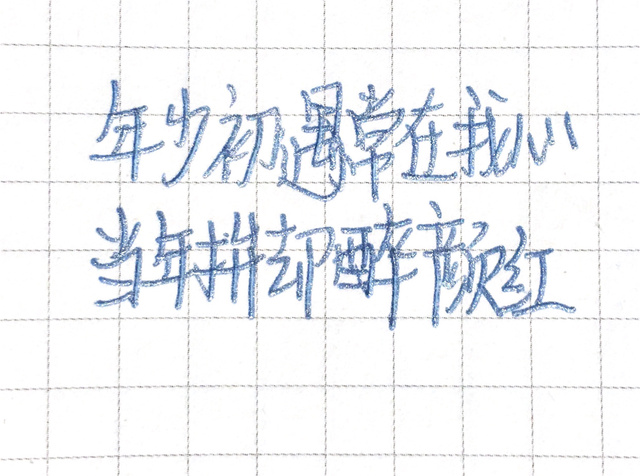 年少初遇常在我心
当年拼却醉颜红